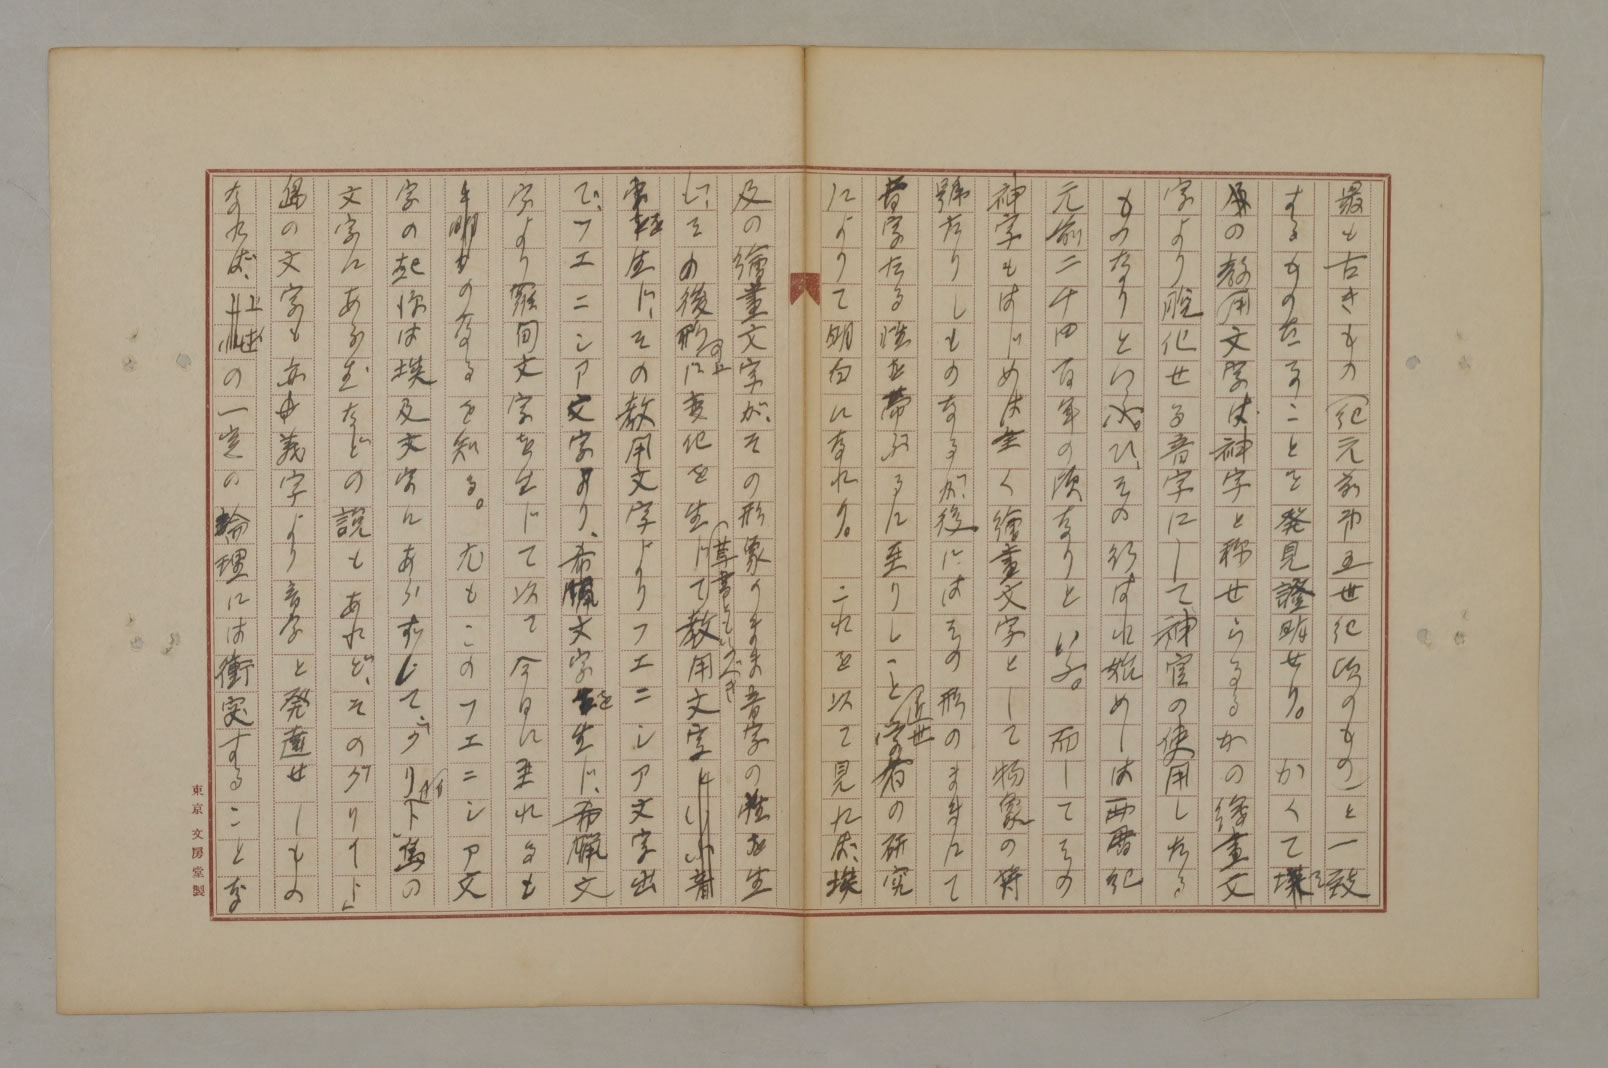 最も古きもの（紀元前第五世紀頃のもの）と一致
するものたることを発見證明せり。かくて埃
及の教用文字は神字と称せらるるかの繪畫文
字より脱化せる音字にして神官の使用したる
ものなりといふ。その行はれ始めしは西暦紀
元前二千四百年の頃なりといふ。而してその
神字もはじめは全く繪畫文字として物象の符
號たりしものなるが、後にはその形のままにて
音字たる性を帯ぶるに至りしこと近世学者の研究
によりて明白になれり。これを以て見れば、埃
及の繪畫文字が、その形象のまま音字の性を生
じ、その後形の上に変化を生じて（草書ともいふべき教用文字
を生じ、その教用文字よりフエニシア文字出
で、フエニシア文字より、希臘文字を生じ、希臘文
字より羅甸文字を生じて以て今日に至れるも
の なるを知る。尤もこのフエニシア文
字の起源は埃及文字にあらずしてヅリト島の
文字にありなどの説もあれど、その
島の文字も亦義字より音字と発達せしもの
なれば、上述の一定の論理には衝突することな
東京 文房堂製